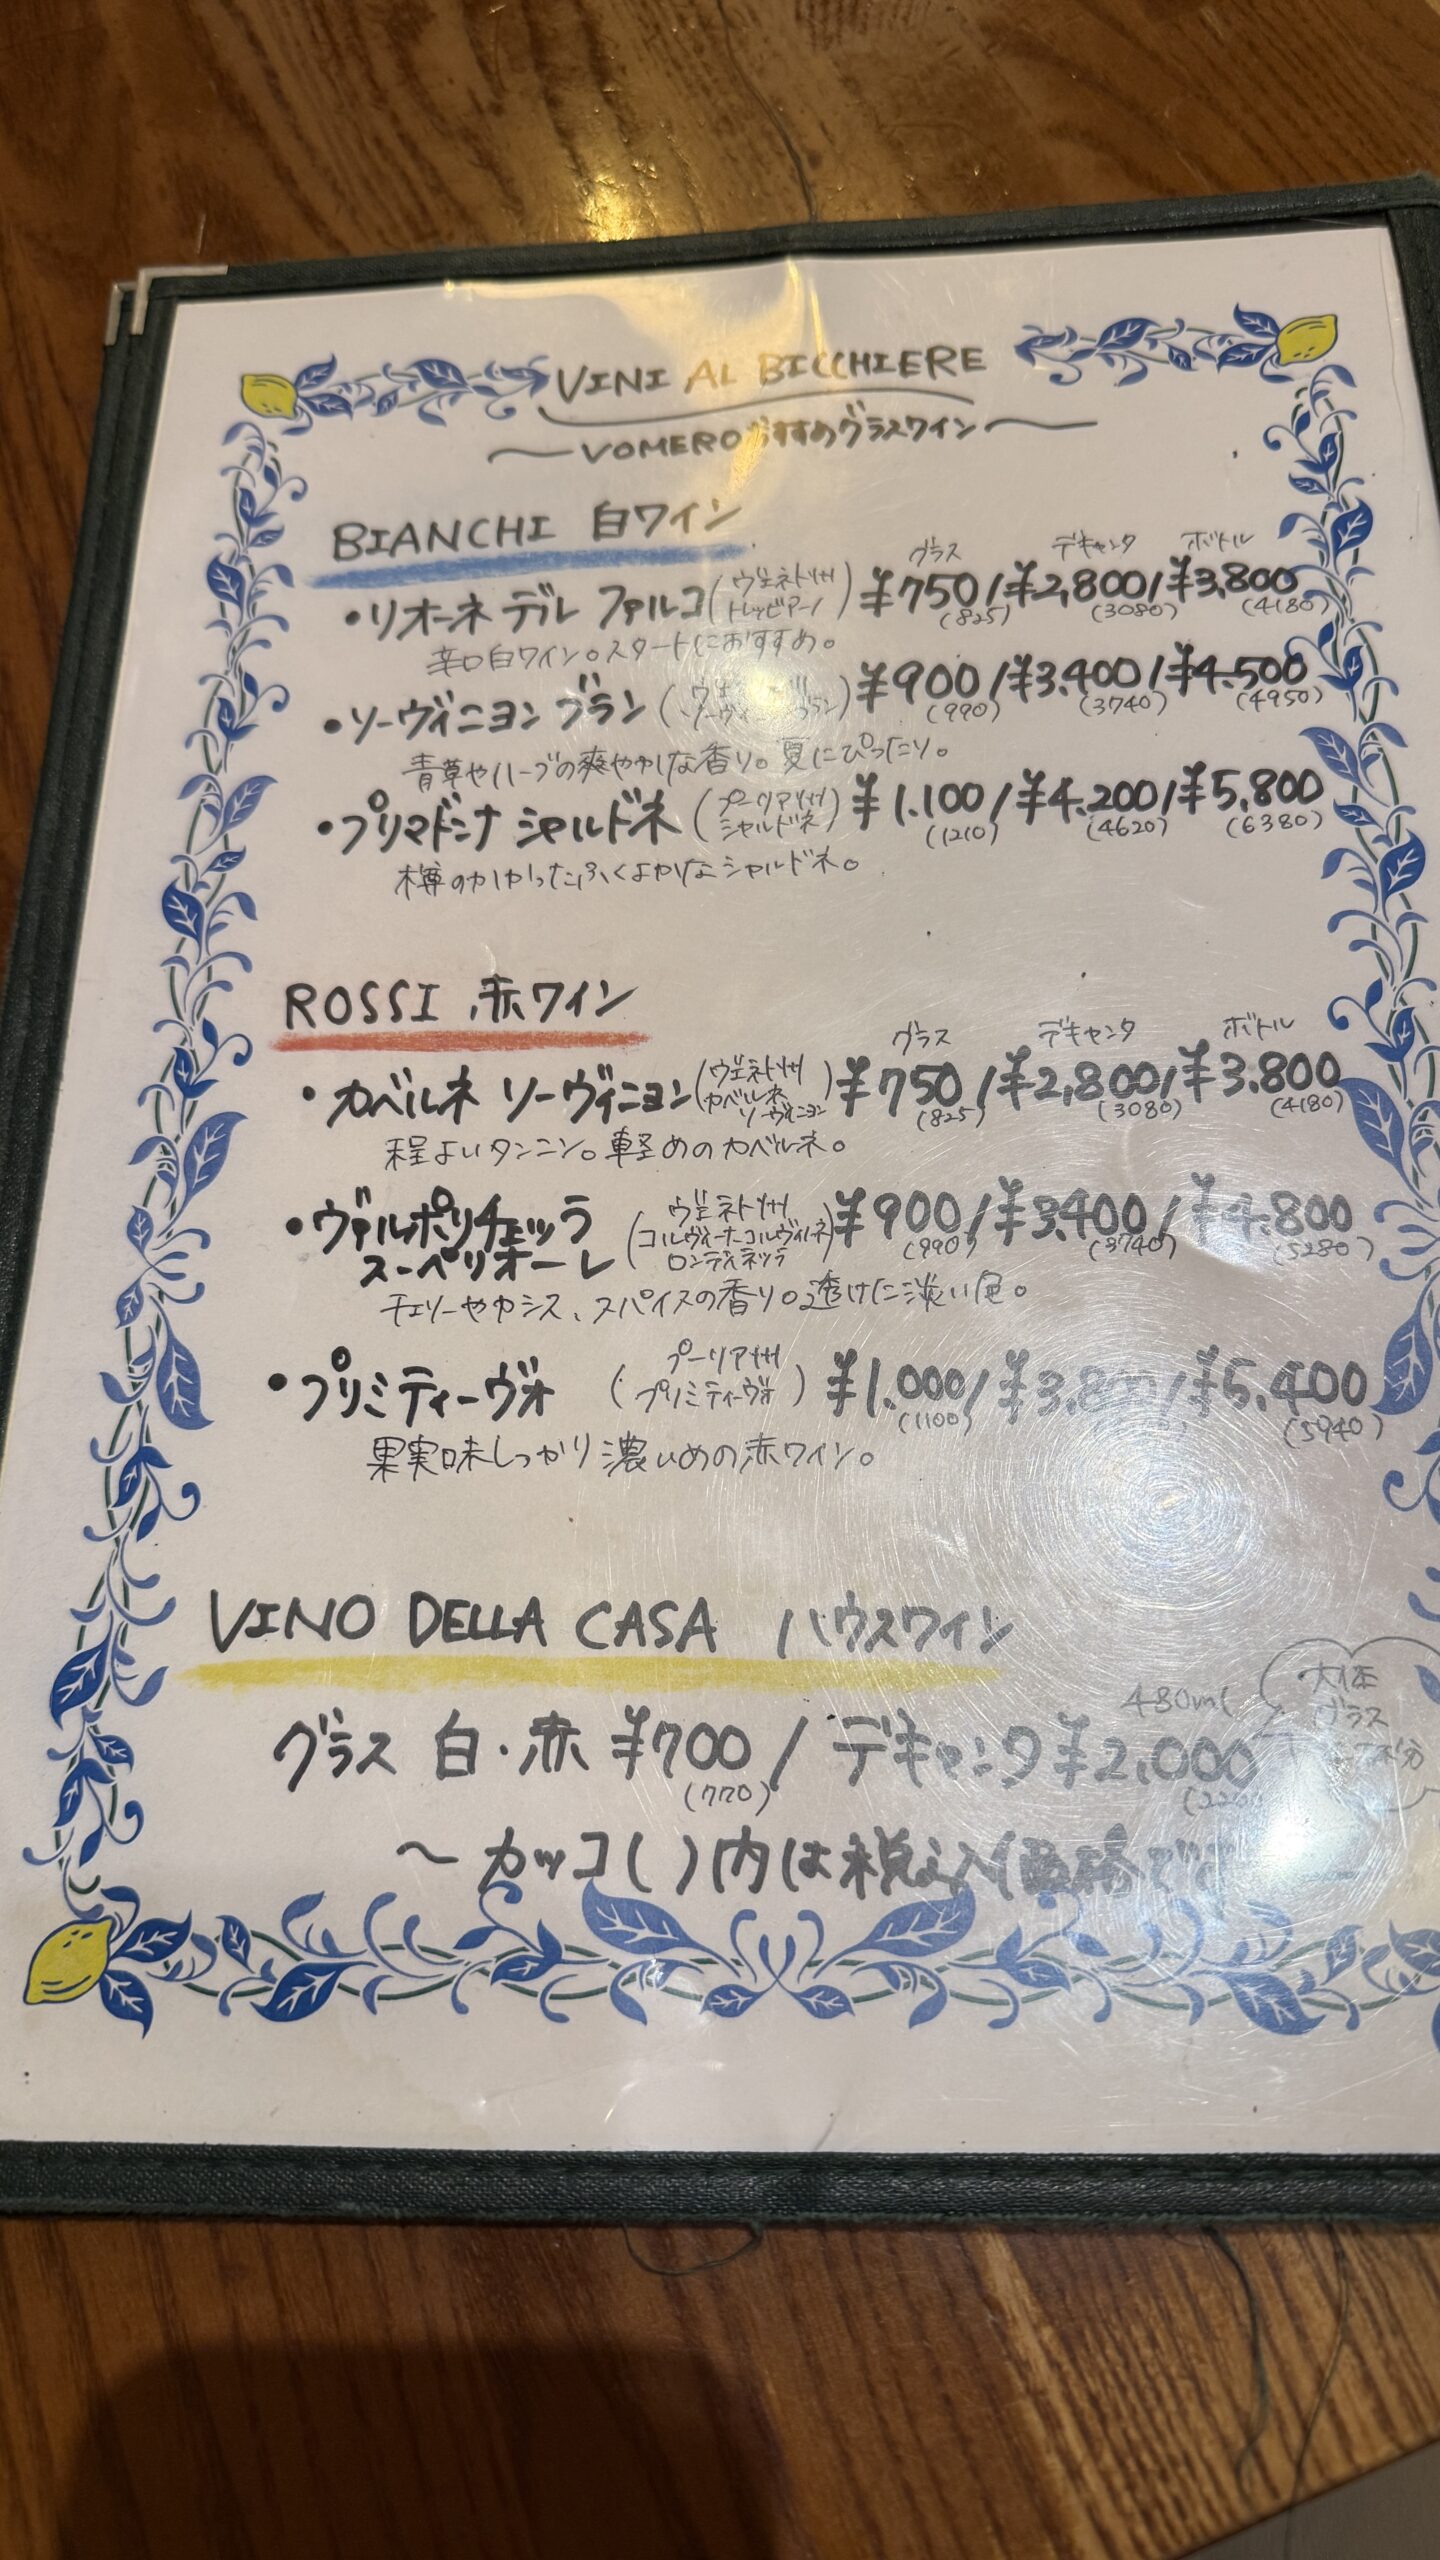 VINI AL BICCHIERE
〜VOMEROおすすめグラスワイン〜
BIANCHI 白ワイン
グラス デキャンタ ボトル
・リオーネ デル ファルコ(ヴェネト州 トレッビアーノ) ¥750/¥2,800/¥3,800
(825) (3080) (4180)
辛口白ワイン。スタートにおすすめ。
・ソーヴィニヨン ブラン ¥900/¥3,400/¥4,500
(990) (3740) (4950)
青草やハーブの爽やかな香り。夏にぴったり。
・プリマドンナ シャルドネ (プーリア州 シャルドネ) ¥1,100/¥4,200/¥5,800
(1210) (4620) (6380)
樽のかかったふくよかなシャルドネ。
ROSSI 赤ワイン
グラス デキャンタ ボトル
・カベルネ ソーヴィニヨン(ヴェネト州 カベルネ ソーヴィニヨン) ¥750/¥2,800/¥3,800
(825) (3080) (4180)
程よいタンニン。軽めのカベルネ。
・ヴァルポリチェッラ スーペリオーレ (ヴェネト州 コルヴィーナ・コルヴィノーネ ロンディネッラ) ¥900/¥3,400/¥4,800
(990) (3740) (5280)
チェリーやカシス、スパイスの香り。透けた淡い色。
・プリミティーヴォ (プーリア州 プリミティーヴォ) ¥1,000/¥3,800/¥5,400
(1100) (5940)
果実味しっかり濃いめの赤ワイン。
VINO DELLA CASA ハウスワイン
480ml
大体
グラス
グラス 白・赤 ¥700/デキャンタ ¥2,000
(770)
〜カッコ( )内は税込価格です